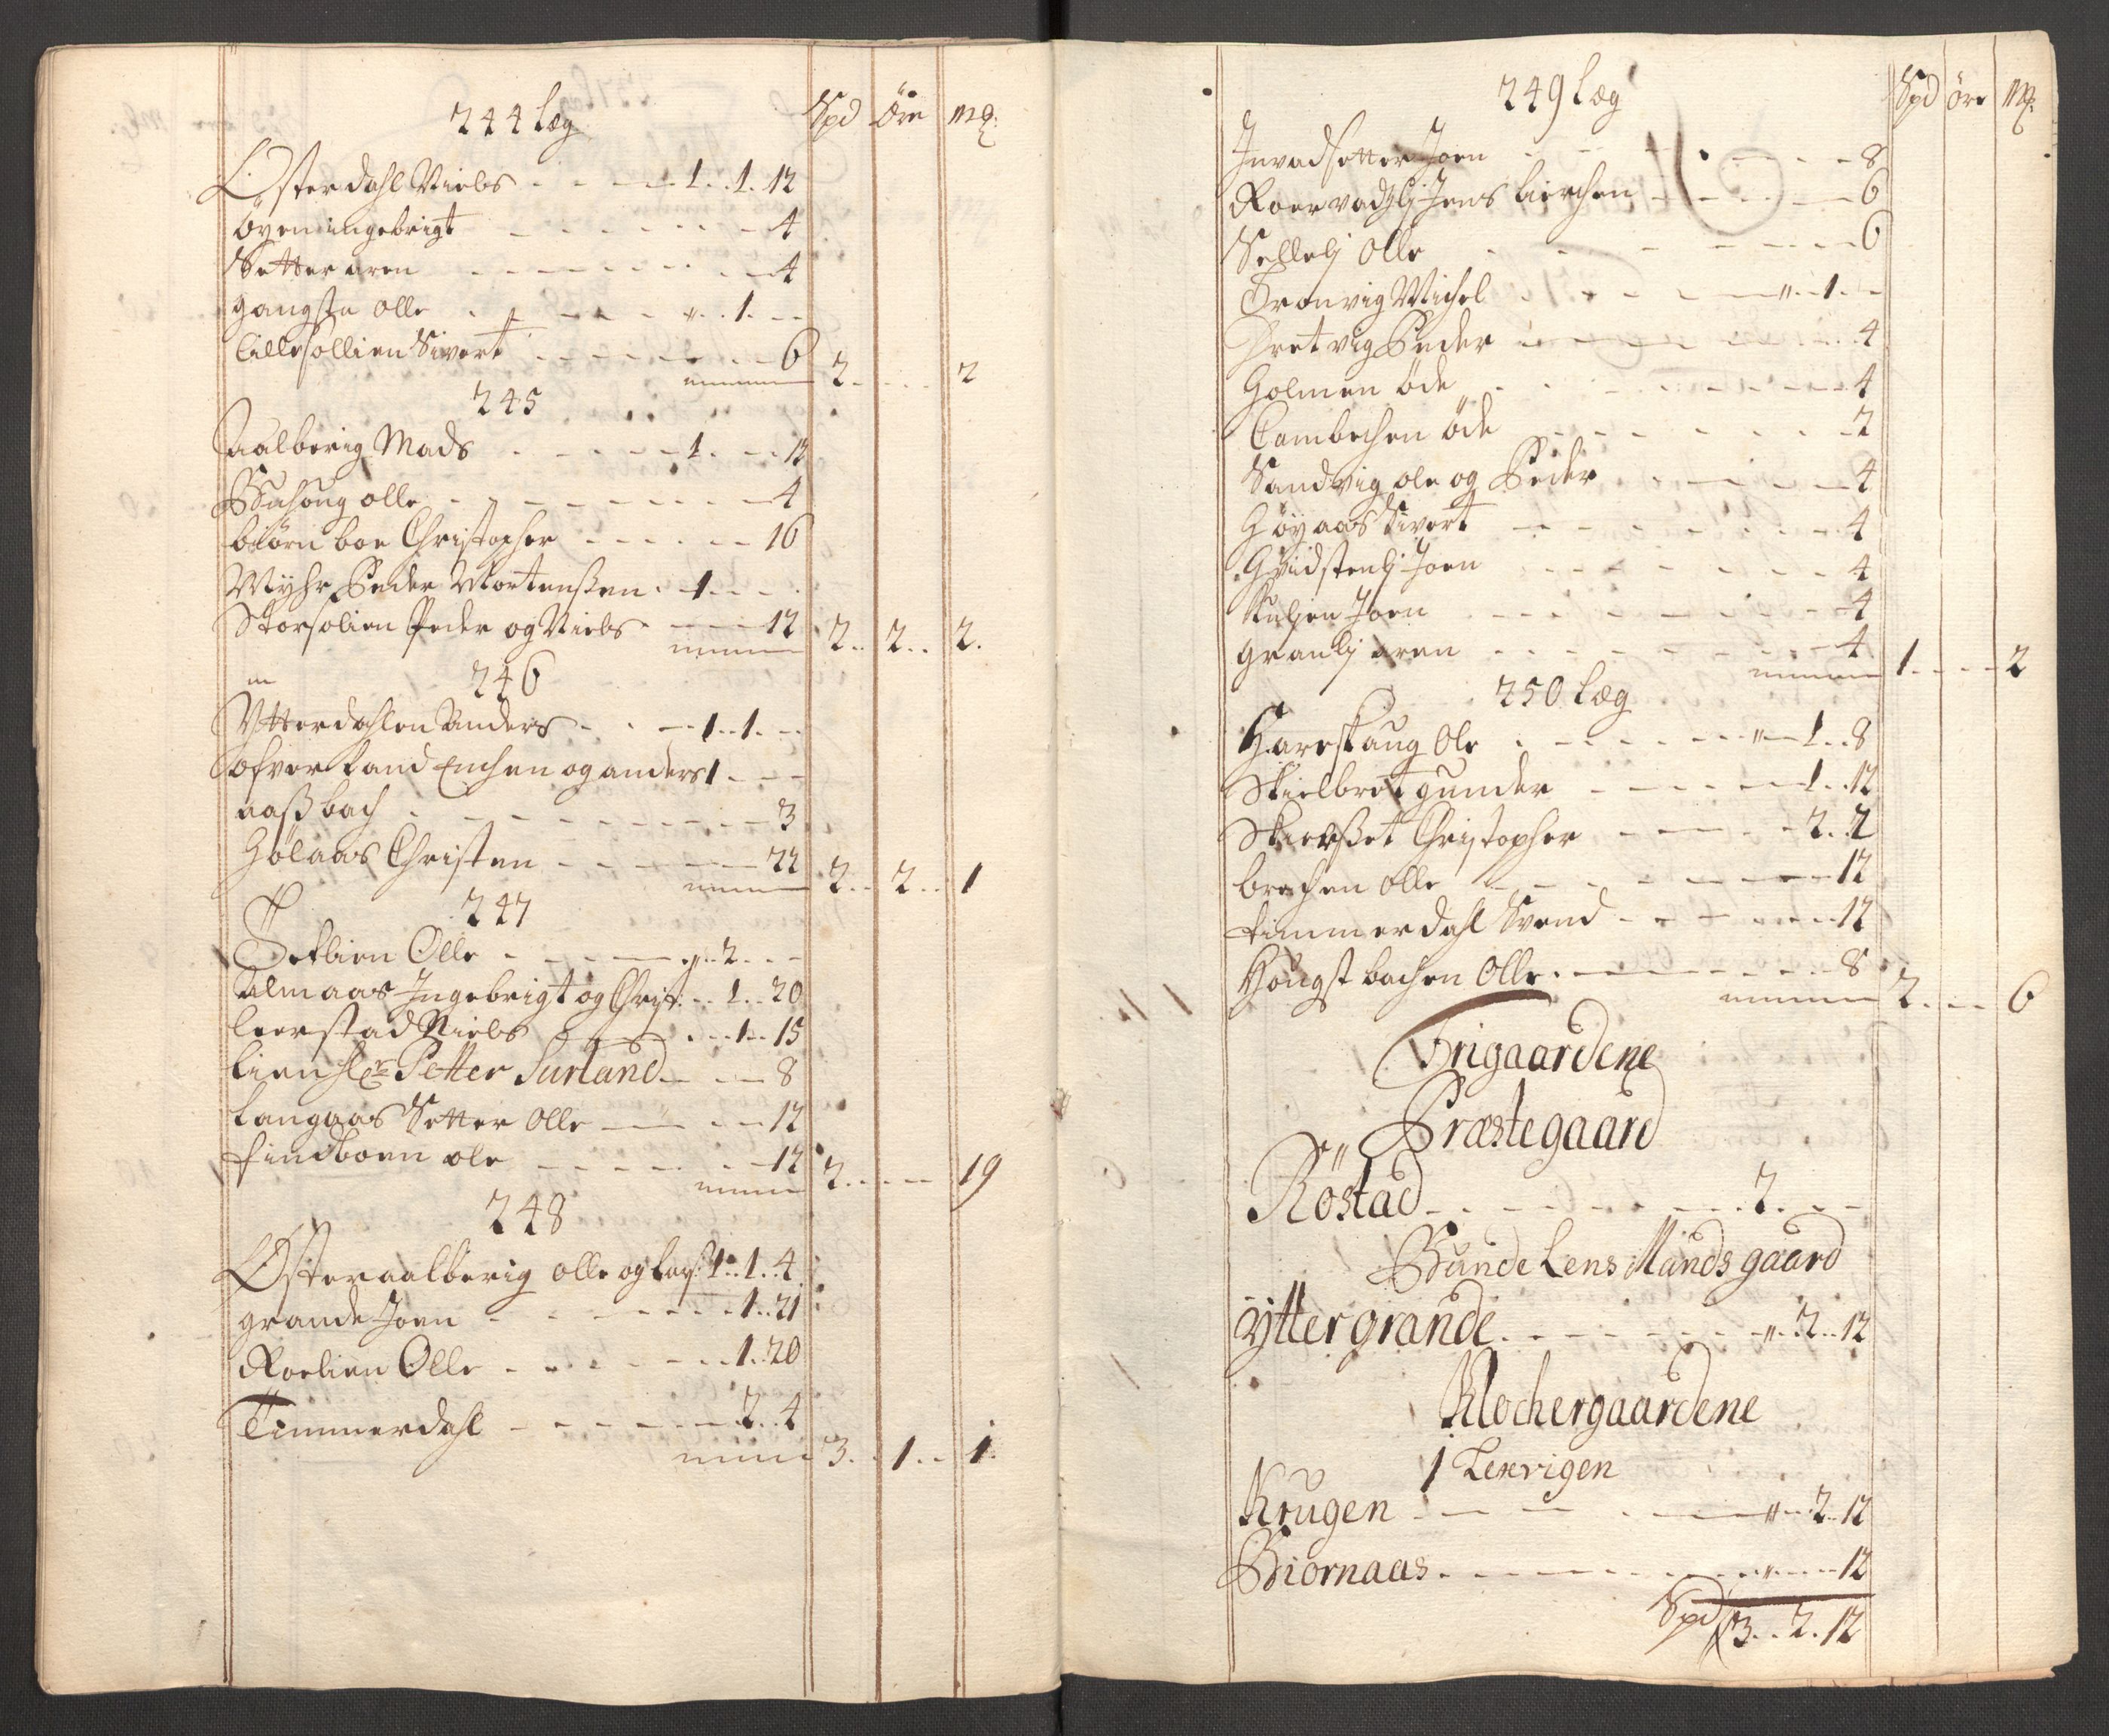 244 læg Spd öre mg:
Österdahl Niels - - - 1..1..12
öyen ingebrigt - - - 4
Setter aren - - - 4
gangstu olle - - - "..1..
Lillesollien Sivert - - - 6 2 - - 2
245
aalberig Mads - - - 1 - - 12
Buhoug olle - - - 4
biörn boe Christopher - - - 16
Myhr Peder Mortenßen - 1 - -
Storsolien Peder og Niels - - - 12 2.. 2.. 2.
246
Ytterdahlen Anders - - - 1..1..
ofver land Enchen og anders 1 - - -
naßbach - - - 3
Gölaas Christen - - - 22 2.. 2.. 1
247
Setlien Olle - - - "..2..
almaas Ingebrigt og Christ: - - 1..20
leerstad Niels - - - 1..15
lien Hr Petter Surland - - - 8
langaas Setter olle - - - 12
findboen ole - - - 12 2 - - - 19
248
Østeraalberig olle og Lars 1..1..4
grande Joen - - - 1..21
Roelien Olle - - - 1..20
Timmerdahl - - - 2..4
3.. 1.. 1
249 læg Spd öre mg:
Invadsetter Joen - - - 8
Roervadzlj Jens bierchen - - - 6
Sellelj olle - - - 6
Tronvig Michel - - - "..1..
Hretvig Peder - - - 4
Holmen öde - - - 4
Cambechen öde - - - 2
Sandvig ole og Peder - - - 4
Höyaas Sivert - - - 4
Gvidstenlj Joen - - - 4
Kuljen Joen - - - 4
granlj aren - - - 4 1 - - - 2
250 læg
Hareskaug Ole - - - "..1..8
Skielbret gunder - - - 1..12
Skierßet Christopher - - - 2..2
brechen olle - - - 12
timmerdahl Svend - - - 12
Hougst bachen Olle - - - 8 2 - - - 6
Frigaardene
Præstegaard
Röstad - - - 2 - - -
Bunde Lens Mands gaard
Ytter grande - - - "..2..12
Klochergaardene
1 Lexvigen
Krugen - - - "..2..12
Biornaas - - - "..12
Spd 3..2..12